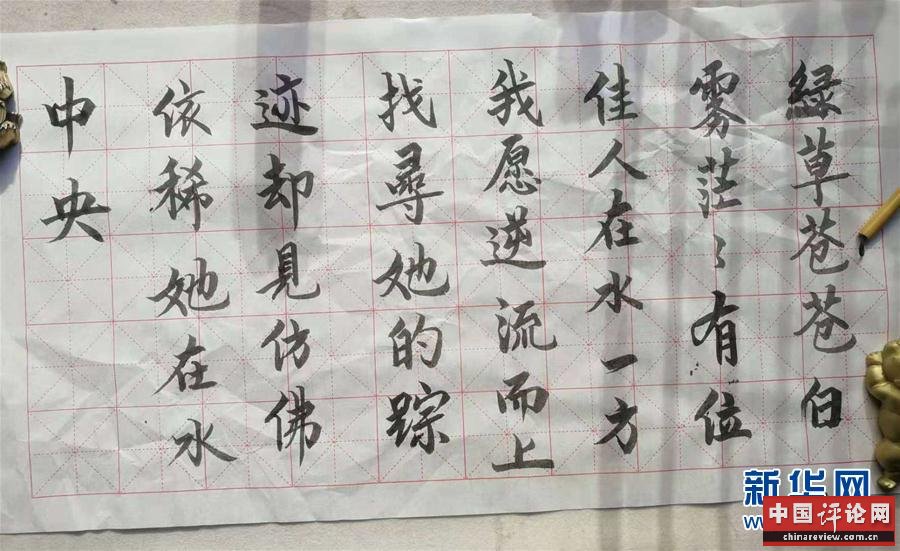 緑草苍苍白
雾茫々有位
佳人在水一方
我愿逆流而上
找尋她的踪
迹却見仿佛
依稀她在水
中央
新华网
WWW
中国评论网
chinareview.com.cn